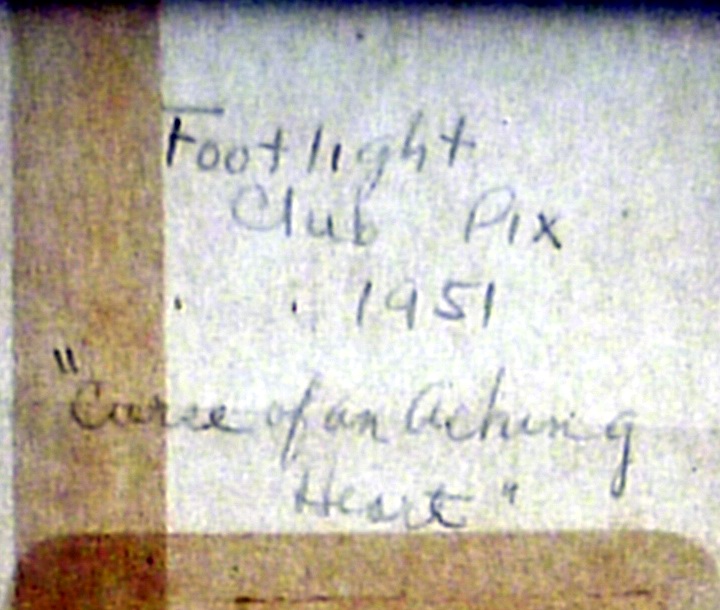 Footlight
Club Pix
1951
"Curse of an Aching
Heart"